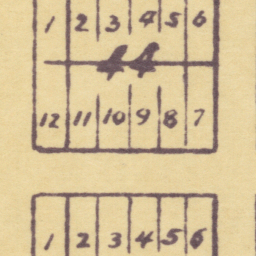 1 2 3 4 5 6
44
12 11 10 9 8 7
1 2 3 4 5 6